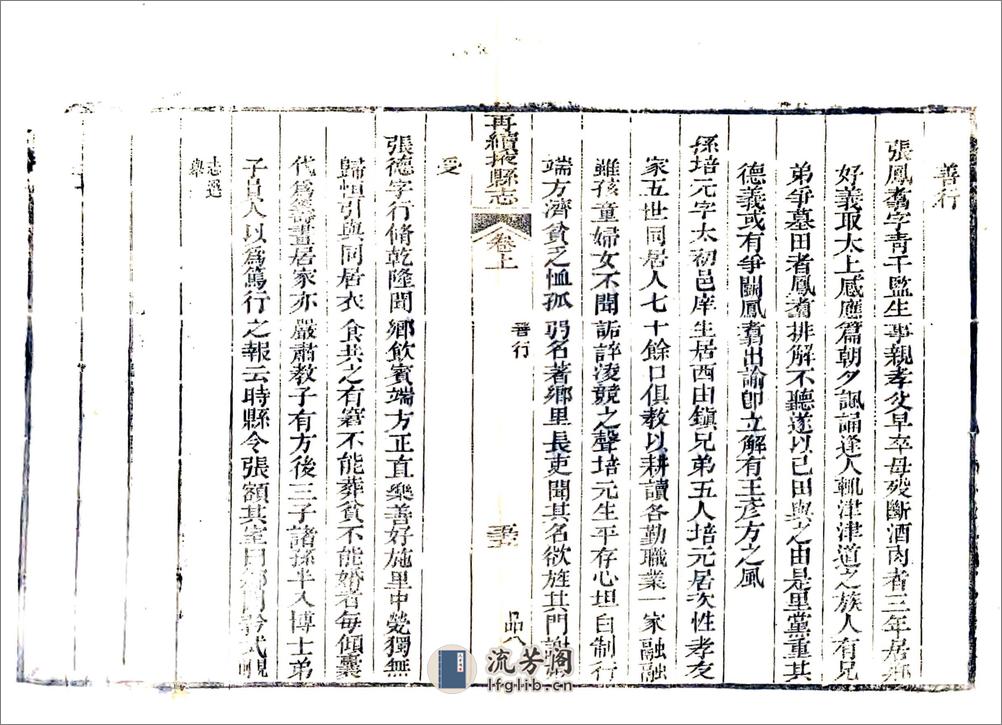 善行
張鳳翥字靑千監生事親孝父早卒母歿斷酒肉者三年居鄉
好義取太上感應篇朝夕諷誦逢人輒津津道之族人有兄
弟爭墓田者鳳翥排解不聽遂以已田與之由是里黨重其
德義或有爭鬭鳳翥出諭卽立解有王彥方之風
孫培元字太初邑庠生居西由鎭兄弟五人培元居次性孝友
家五世同居人七十餘口俱教以耕讀各勤職業一家融融
雖孩童婦女不聞詬誶淩競之聲培元生平存心坦白制行
端方濟貧乏恤孤弱名著鄉里長吏聞其名欲旌其門謝
再續掖縣志
卷上
善行
受
張德字行脩乾隆間鄉飲賓端方正直樂善好施里中煢獨無
歸恒引與同居衣食共之有窘不能葬貧不能婚者每傾囊
代爲籌畫居家亦嚴肅教子有方後三子諸孫半入博士弟
子員人以爲篤行之報云時縣令張額其室曰
志選
舉
流芳閣
lfglib.cn